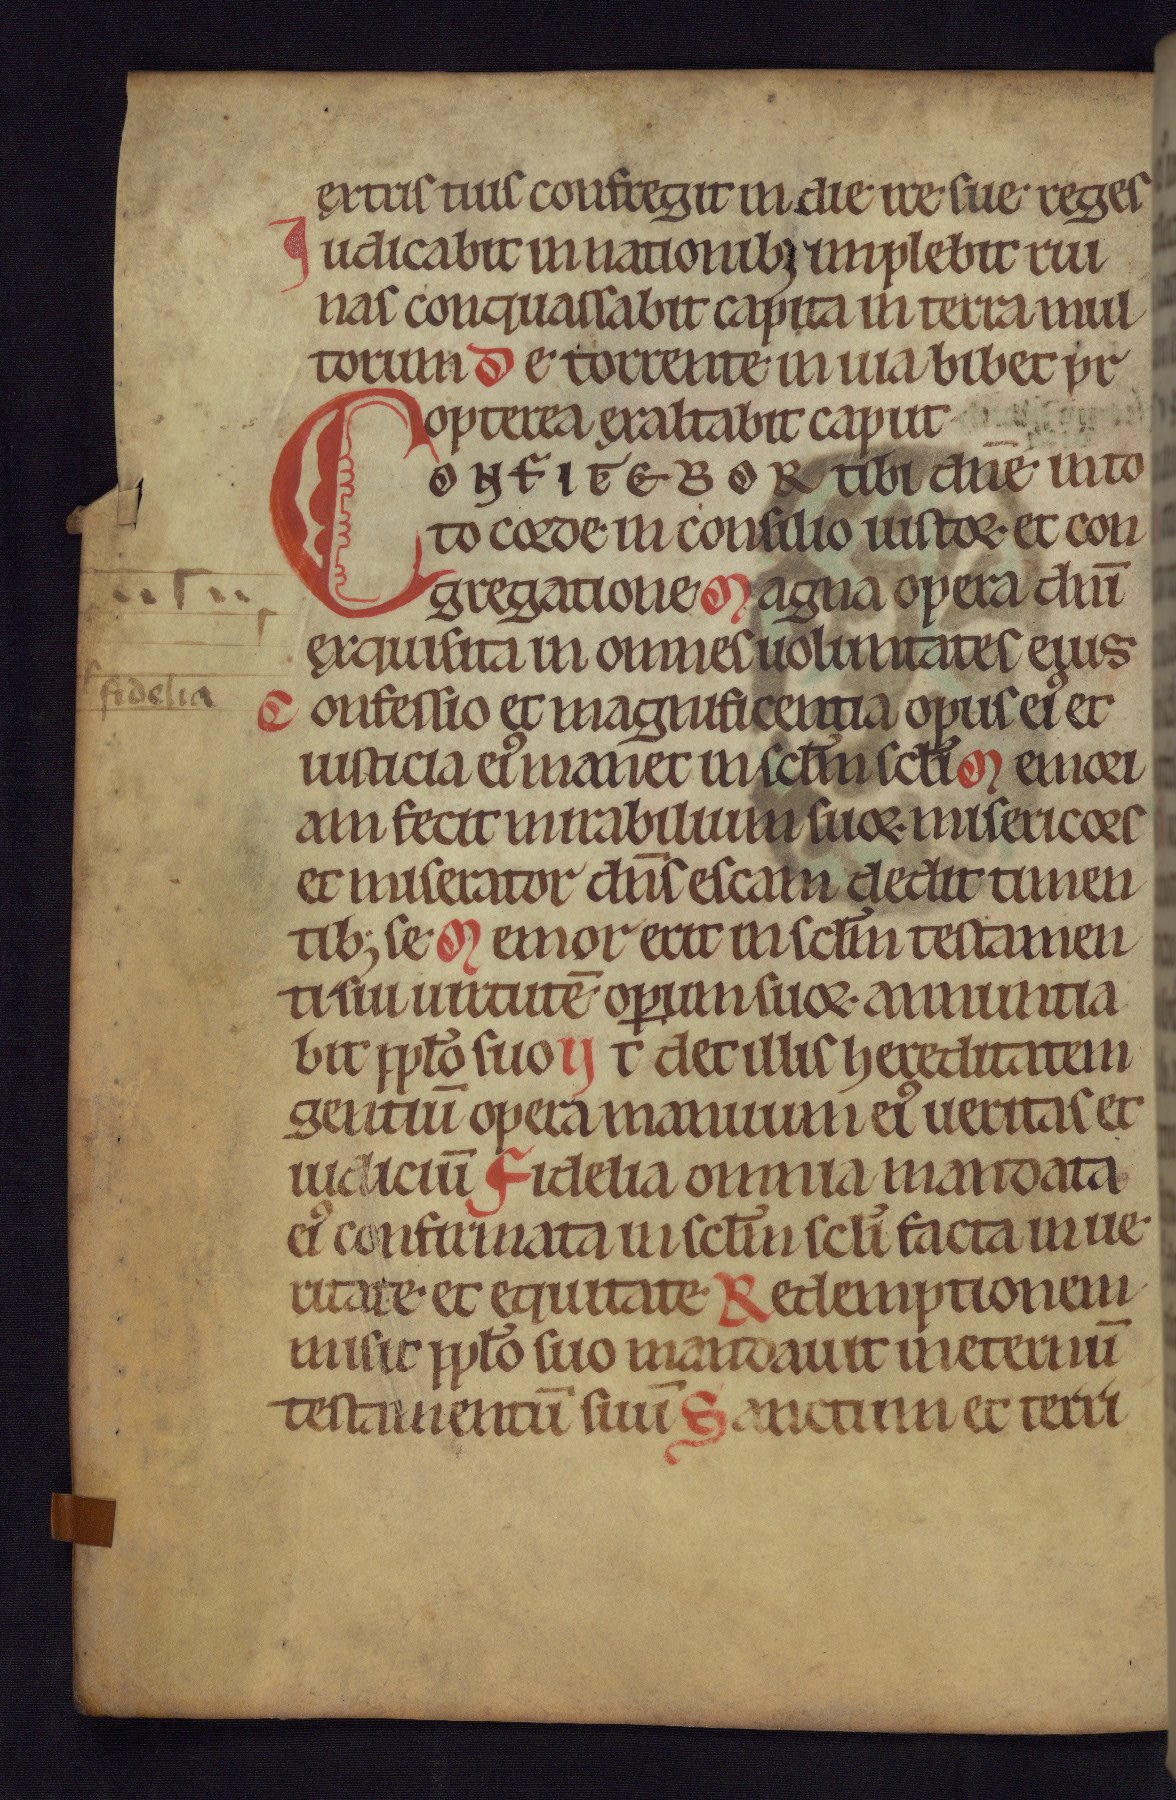 extris tuis confregit in die ire sue reges
Iudicabit in nationib; implebit rui
nas conquassabit capita in terra mul
torum De torrente in uia bibet pr
opterea exaltabit caput
CONFITEBOR tibi dn̄e in to
to corde in consilio iustoꝝ et con
gregatione Magna opera dn̄i
exquisita in omnes uoluntates eius
Confessio et magnificentia opus eiꝰ et
iusticia eiꝰ manet in scl̄m scl̄i Memori
am fecit mirabilium suoꝝ misericors
et miserator dn̄s escam dedit timen
tib; se Memor erit in scl̄m testamen
ti sui uirtutē oꝑum suoꝝ annuntia
bit ppl̄o suo Vt det illis hereditatem
gentiū opera manuum eiꝰ ueritas et
iudiciū Fidelia omnia mandata
eiꝰ confirmata in scl̄m scl̄i facta in ue
ritate et equitate Redemptionem
misit ppl̄o suo mandauit in eternū
testamentū suū Sanctum et terri
fidelia